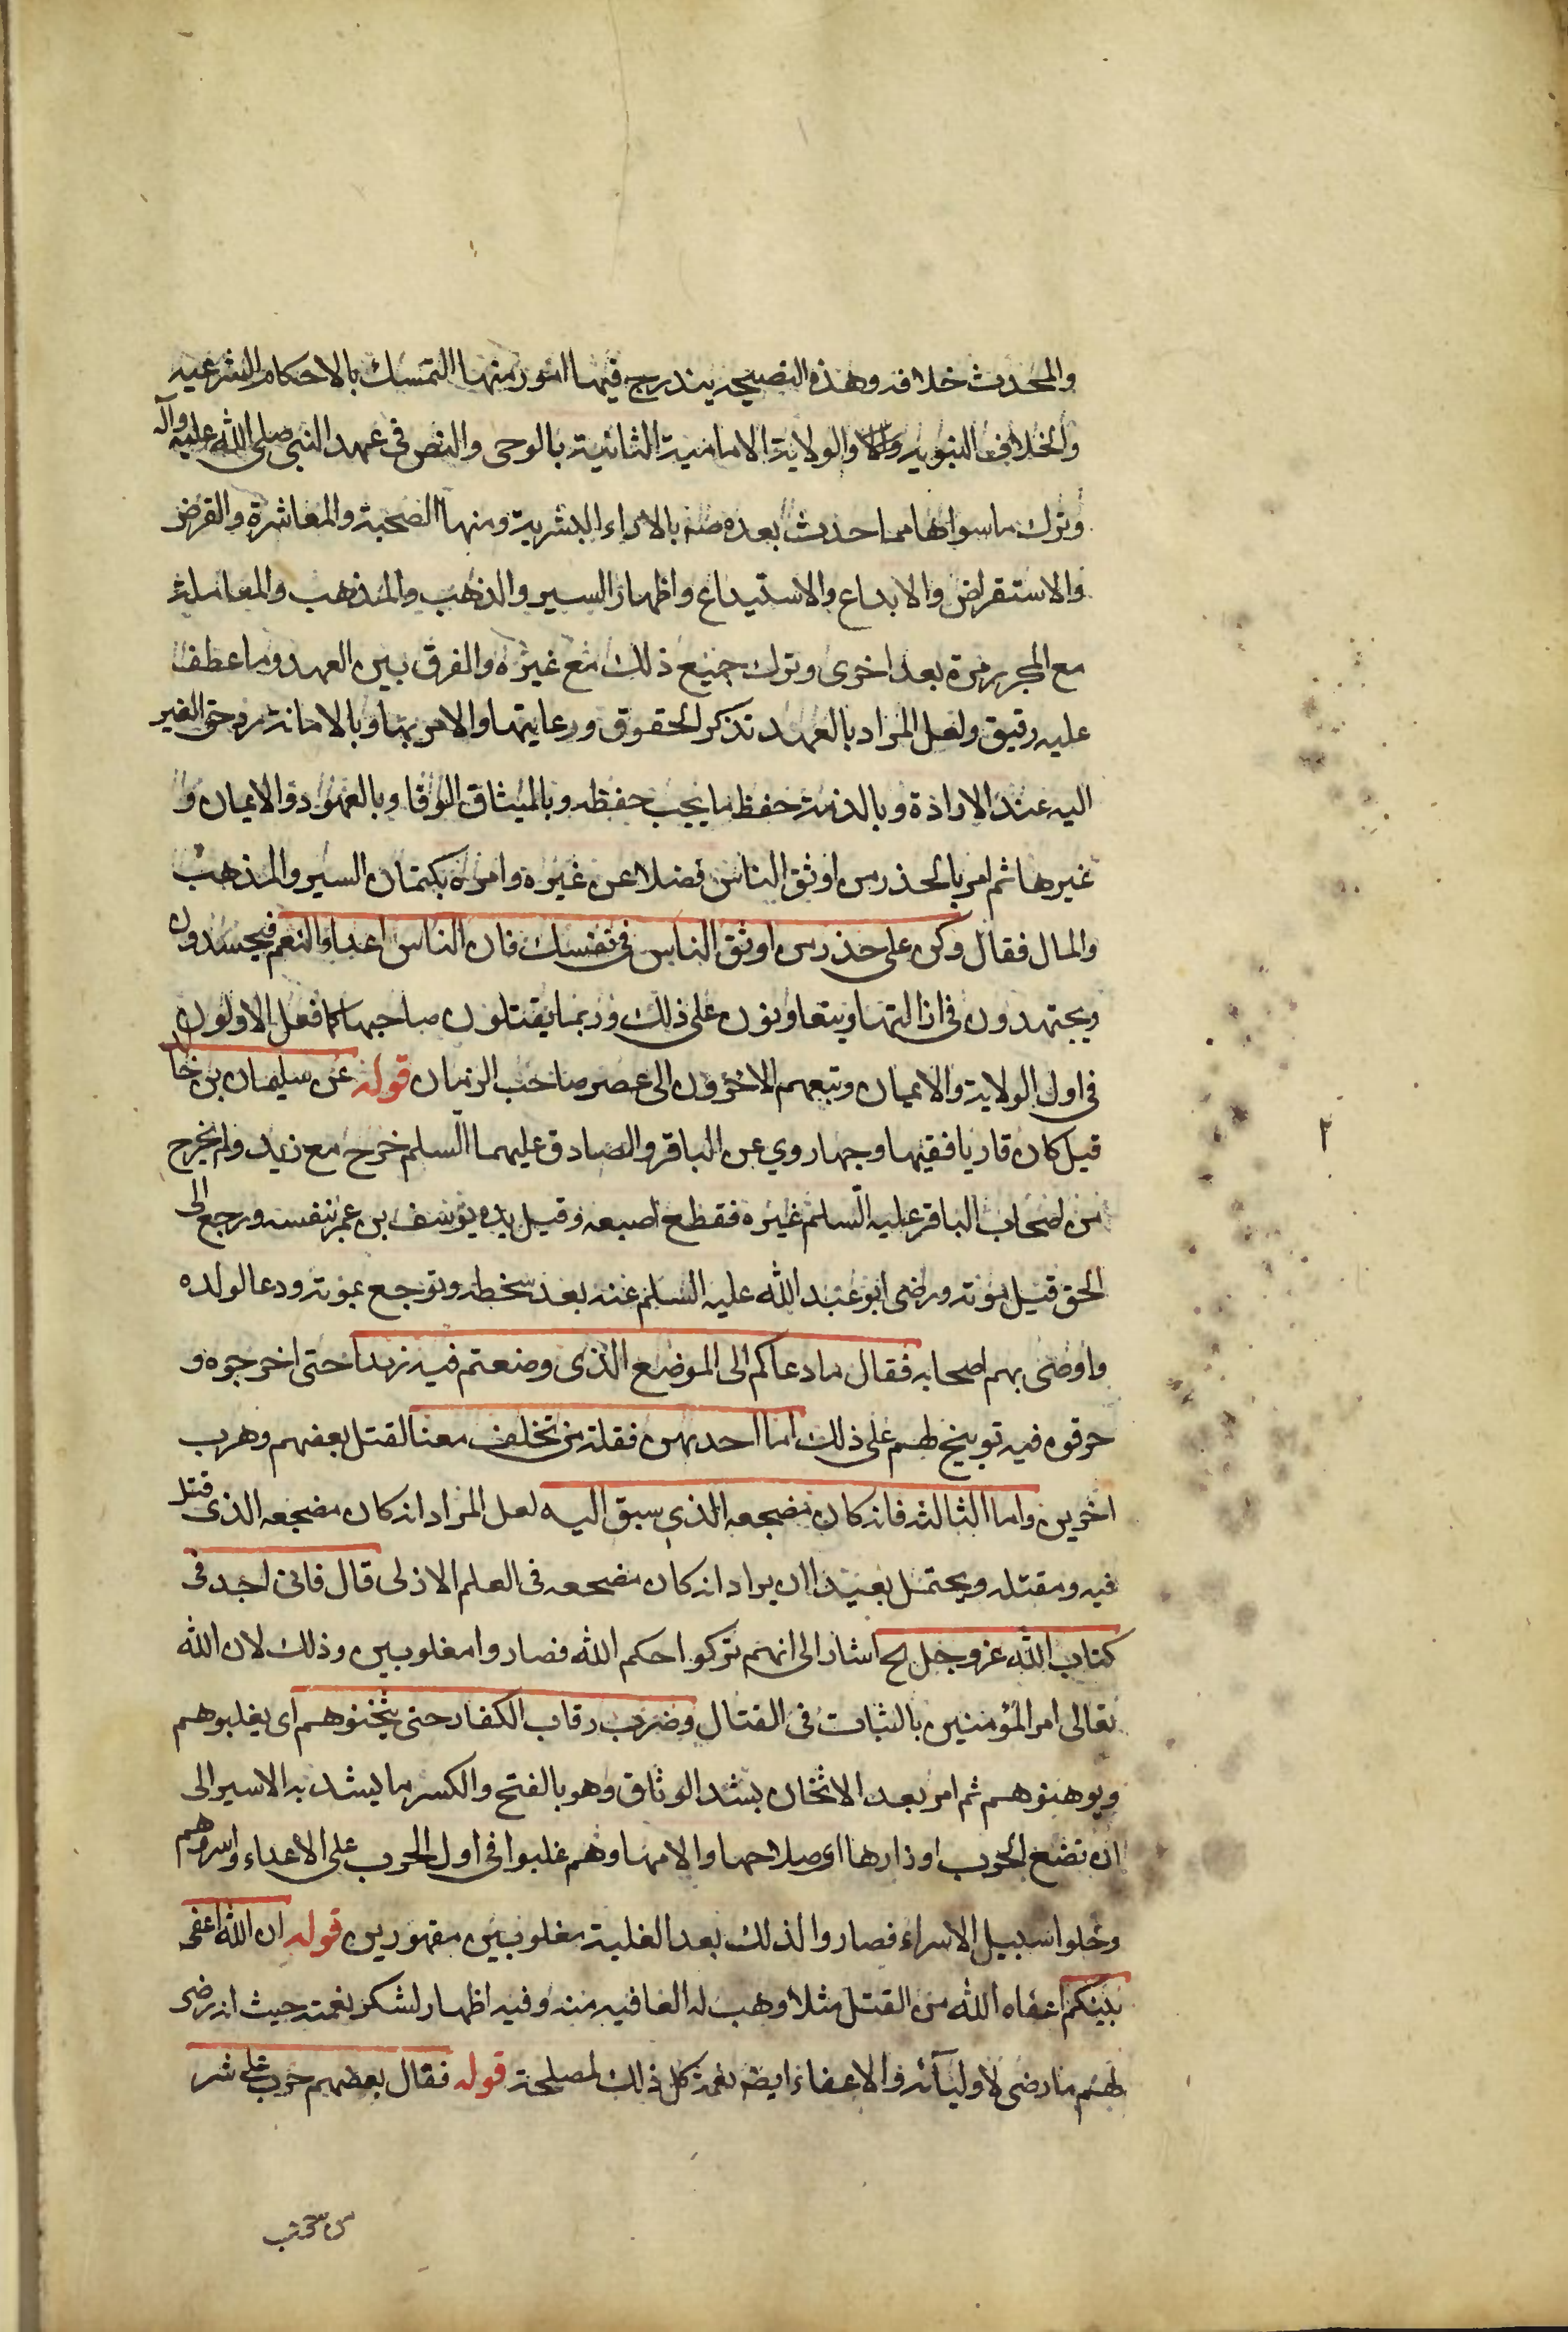 والمحدث خلافه وهذه النصيحه يندرج فيها امور منها التمسك بالاحكام الشرعيه
والخلافه النبويه والولاية الامامية الثابتية بالوحى والنص فى عهد النبى صلى الله عليه وآله
وترك ما سواها مما احدث بعده منه بالاراء البشرية ومنها الصحبة والمعاشرة والقرض
والاستقراض والابداع والاستيداع واظهار السير والذهب والمذهب والمعاملة
مع المجرب مرة بعد اخرى وترك جميع ذلك مع غيره والفرق بين العهد وما عطف
عليه رقيق ولعل المراد بالعهد تذكر الحقوق ورعايتها والامر بها وبالامانة رد حق الغير
اليه عند الارادة وبالذمة حفظ ما يجب حفظه وبالميثاق الوفا وبالعهود والايمان و
غيرها ثم امر بالحذر من اوثق الناس فضلا عن غيره وامره بكتمان السير والمذهب
والمال فقال وكن على حذر من اوثق الناس فى نفسك فان الناس اعداء النعم فيحسدون
ويجتهدون فى ازالتها ويتعاونون على ذلك وربما يقتلون صاحبها كما فعل الاولون
فى اول الولاية والايمان وتبعهم الاخرون الى عصر صاحب الزمان قوله عن سليمان بن خالد
قيل كان قاريا فقيها وجها روي عن الباقر والصادق عليهما السلم خرج مع زيد ولم يخرج
من اصحاب الباقر عليه السلم غيره فقطع اصبعه وقيل يده يوسف بن عمر بنفسه ورجع الى
الحق قبل موته ورضى ابو عبد الله عليه السلم عنه بعد سخطه وتوجع بموته ودعا لولده
واوصى بهم اصحابه فقال ما دعاكم الى الموضع الذى وضعتم فيه زيدا حتى اخرجوه و
حرقوه فيه توبيخ لهم على ذلك اما احديهن فقلة من تخلف معنا لقتل بعضهم وهرب
اخرين واما الثالثه فانه كان مضجعه الذي سبق اليه لعل المراد انه كان مضجعه الذى قتل
فيه ومقتله ويحتمل بعيدا ان يراد انه كان مضجعه فى العلم الازلى قال فانى اجد فى
كتاب الله عز وجل الخ اشار الى انهم تركوا حكم الله فصاروا مغلوبين وذلك لان الله
تعالى امر المؤمنين بالثبات فى القتال وضرب رقاب الكفار حتى يثخنوهم اى يغلبوهم
ويوهنوهم ثم امر بعد الاثخان بشد الوثاق وهو بالفتح والكسر ما يشد به الاسير الى
ان تضع الحرب اوزارها اى سلاحها والامها وهم غلبوا فى اول الحرب على الاعداء واسروهم
وخلوا سبيل الاسراء فصاروا لذلك بعد الغلبة مغلوبين مقهورين قوله ان الله اعفى
نبيكم اعفاه الله من القتل مثلا وهب له العافيه منه وفيه اظهار لشكر نعمته حيث انه رضى
لهم ما رضى لاوليآئه والاعفاء ايضه نعمة كل ذلك لمصلحة قوله فقال بعضهم حرب على شر
٢